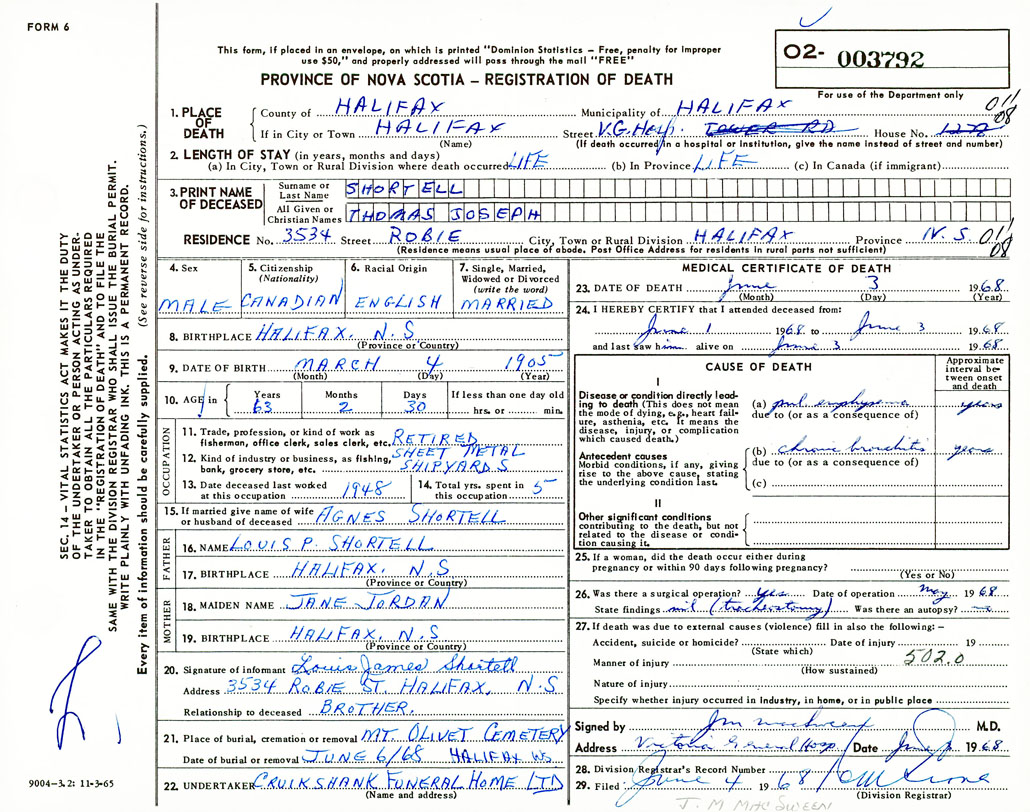 FORM 6
This form, if placed in an envelope, on which is printed "Dominion Statistics – Free, penalty for improper
use $50," and properly addressed will pass through the mail "FREE"
PROVINCE OF NOVA SCOTIA – REGISTRATION OF DEATH
02- 003792
For use of the Department only
011/08
1. PLACE OF DEATH
County of HALIFAX Municipality of HALIFAX
If in City or Town HALIFAX (Name) Street V.G. Hosp. TOWER RD House No. 1278
(If death occurred in a hospital or institution, give the name instead of street and number)
2. LENGTH OF STAY (in years, months and days)
(a) In City, Town or Rural Division where death occurred LIFE (b) In Province LIFE (c) In Canada (if immigrant)
3. PRINT NAME OF DECEASED
Surname or Last Name SHORTELL
All Given or Christian Names THOMAS JOSEPH
RESIDENCE No. 3534 Street ROBIE City, Town or Rural Division HALIFAX Province N.S. 011/08
(Residence means usual place of abode. Post Office Address for residents in rural parts not sufficient)
4. Sex MALE
5. Citizenship (Nationality) CANADIAN
6. Racial Origin ENGLISH
7. Single, Married, Widowed or Divorced (write the word) MARRIED
8. BIRTHPLACE HALIFAX. N.S
(Province or Country)
9. DATE OF BIRTH MARCH 4 1905
(Month) (Day) (Year)
10. AGE in Years 63 Months 2 Days 30 If less than one day old hrs. or min.
OCCUPATION
11. Trade, profession, or kind of work as fisherman, office clerk, sales clerk, etc. RETIRED
12. Kind of industry or business, as fishing, bank, grocery store, etc. SHEET METAL SHIPYARDS
13. Date deceased last worked at this occupation 1948
14. Total yrs. spent in this occupation 5
15. If married give name of wife or husband of deceased AGNES SHORTELL
FATHER
16. NAME LOUIS P. SHORTELL
17. BIRTHPLACE HALIFAX. N.S
(Province or Country)
MOTHER
18. MAIDEN NAME JANE JORDAN
19. BIRTHPLACE HALIFAX. N.S
(Province or Country)
20. Signature of informant Louis James Shortell
Address 3534 ROBIE ST. HALIFAX, N.S
Relationship to deceased BROTHER.
21. Place of burial, cremation or removal MT. OLIVET CEMETERY
Date of burial or removal JUNE 6/68 HALIFAX NS
22. UNDERTAKER CRUIKSHANK FUNERAL HOME LTD
(Name and address)
MEDICAL CERTIFICATE OF DEATH
23. DATE OF DEATH June 3 1968
(Month) (Day) (Year)
24. I HEREBY CERTIFY that I attended deceased from:
June 1 1968 to June 3 1968
and last saw him alive on June 3 1968
CAUSE OF DEATH
Approximate interval between onset and death
I
Disease or condition directly leading to death (This does not mean the mode of dying, e.g., heart failure, asthenia, etc. It means the disease, injury, or complication which caused death.)
(a) pul. emphysema years
due to (or as a consequence of)
Antecedent causes
Morbid conditions, if any, giving rise to the above cause, stating the underlying condition last.
(b) chronic bronchitis years
due to (or as a consequence of)
(c)
II
Other significant conditions
contributing to the death, but not related to the disease or condition causing it.
25. If a woman, did the death occur either during
pregnancy or within 90 days following pregnancy?
(Yes or No)
26. Was there a surgical operation? yes Date of operation May 1968
State findings nil (tracheostomy) Was there an autopsy? no
27. If death was due to external causes (violence) fill in also the following: –
Accident, suicide or homicide? Date of injury 19
(State which)
Manner of injury 502.0
(How sustained)
Nature of injury
Specify whether injury occurred in industry, in home, or in public place
Signed by M.D.
Address Victoria General Hosp. Date June 1968
28. Division Registrar's Record Number
29. Filed June 4 1968
(Division Registrar)
J. M. MacSween
SEC. 14 – VITAL STATISTICS ACT MAKES IT THE DUTY
OF THE UNDERTAKER OR PERSON ACTING AS UNDER-
TAKER TO OBTAIN ALL THE PARTICULARS REQUIRED
IN THE "REGISTRATION OF DEATH" AND TO FILE THE
SAME WITH THE DIVISION REGISTRAR WHO SHALL ISSUE THE BURIAL PERMIT.
WRITE PLAINLY WITH UNFADING INK. THIS IS A PERMANENT RECORD.
Every item of information should be carefully supplied. (See reverse side for instructions.)
9004-3.2: 11-3-65